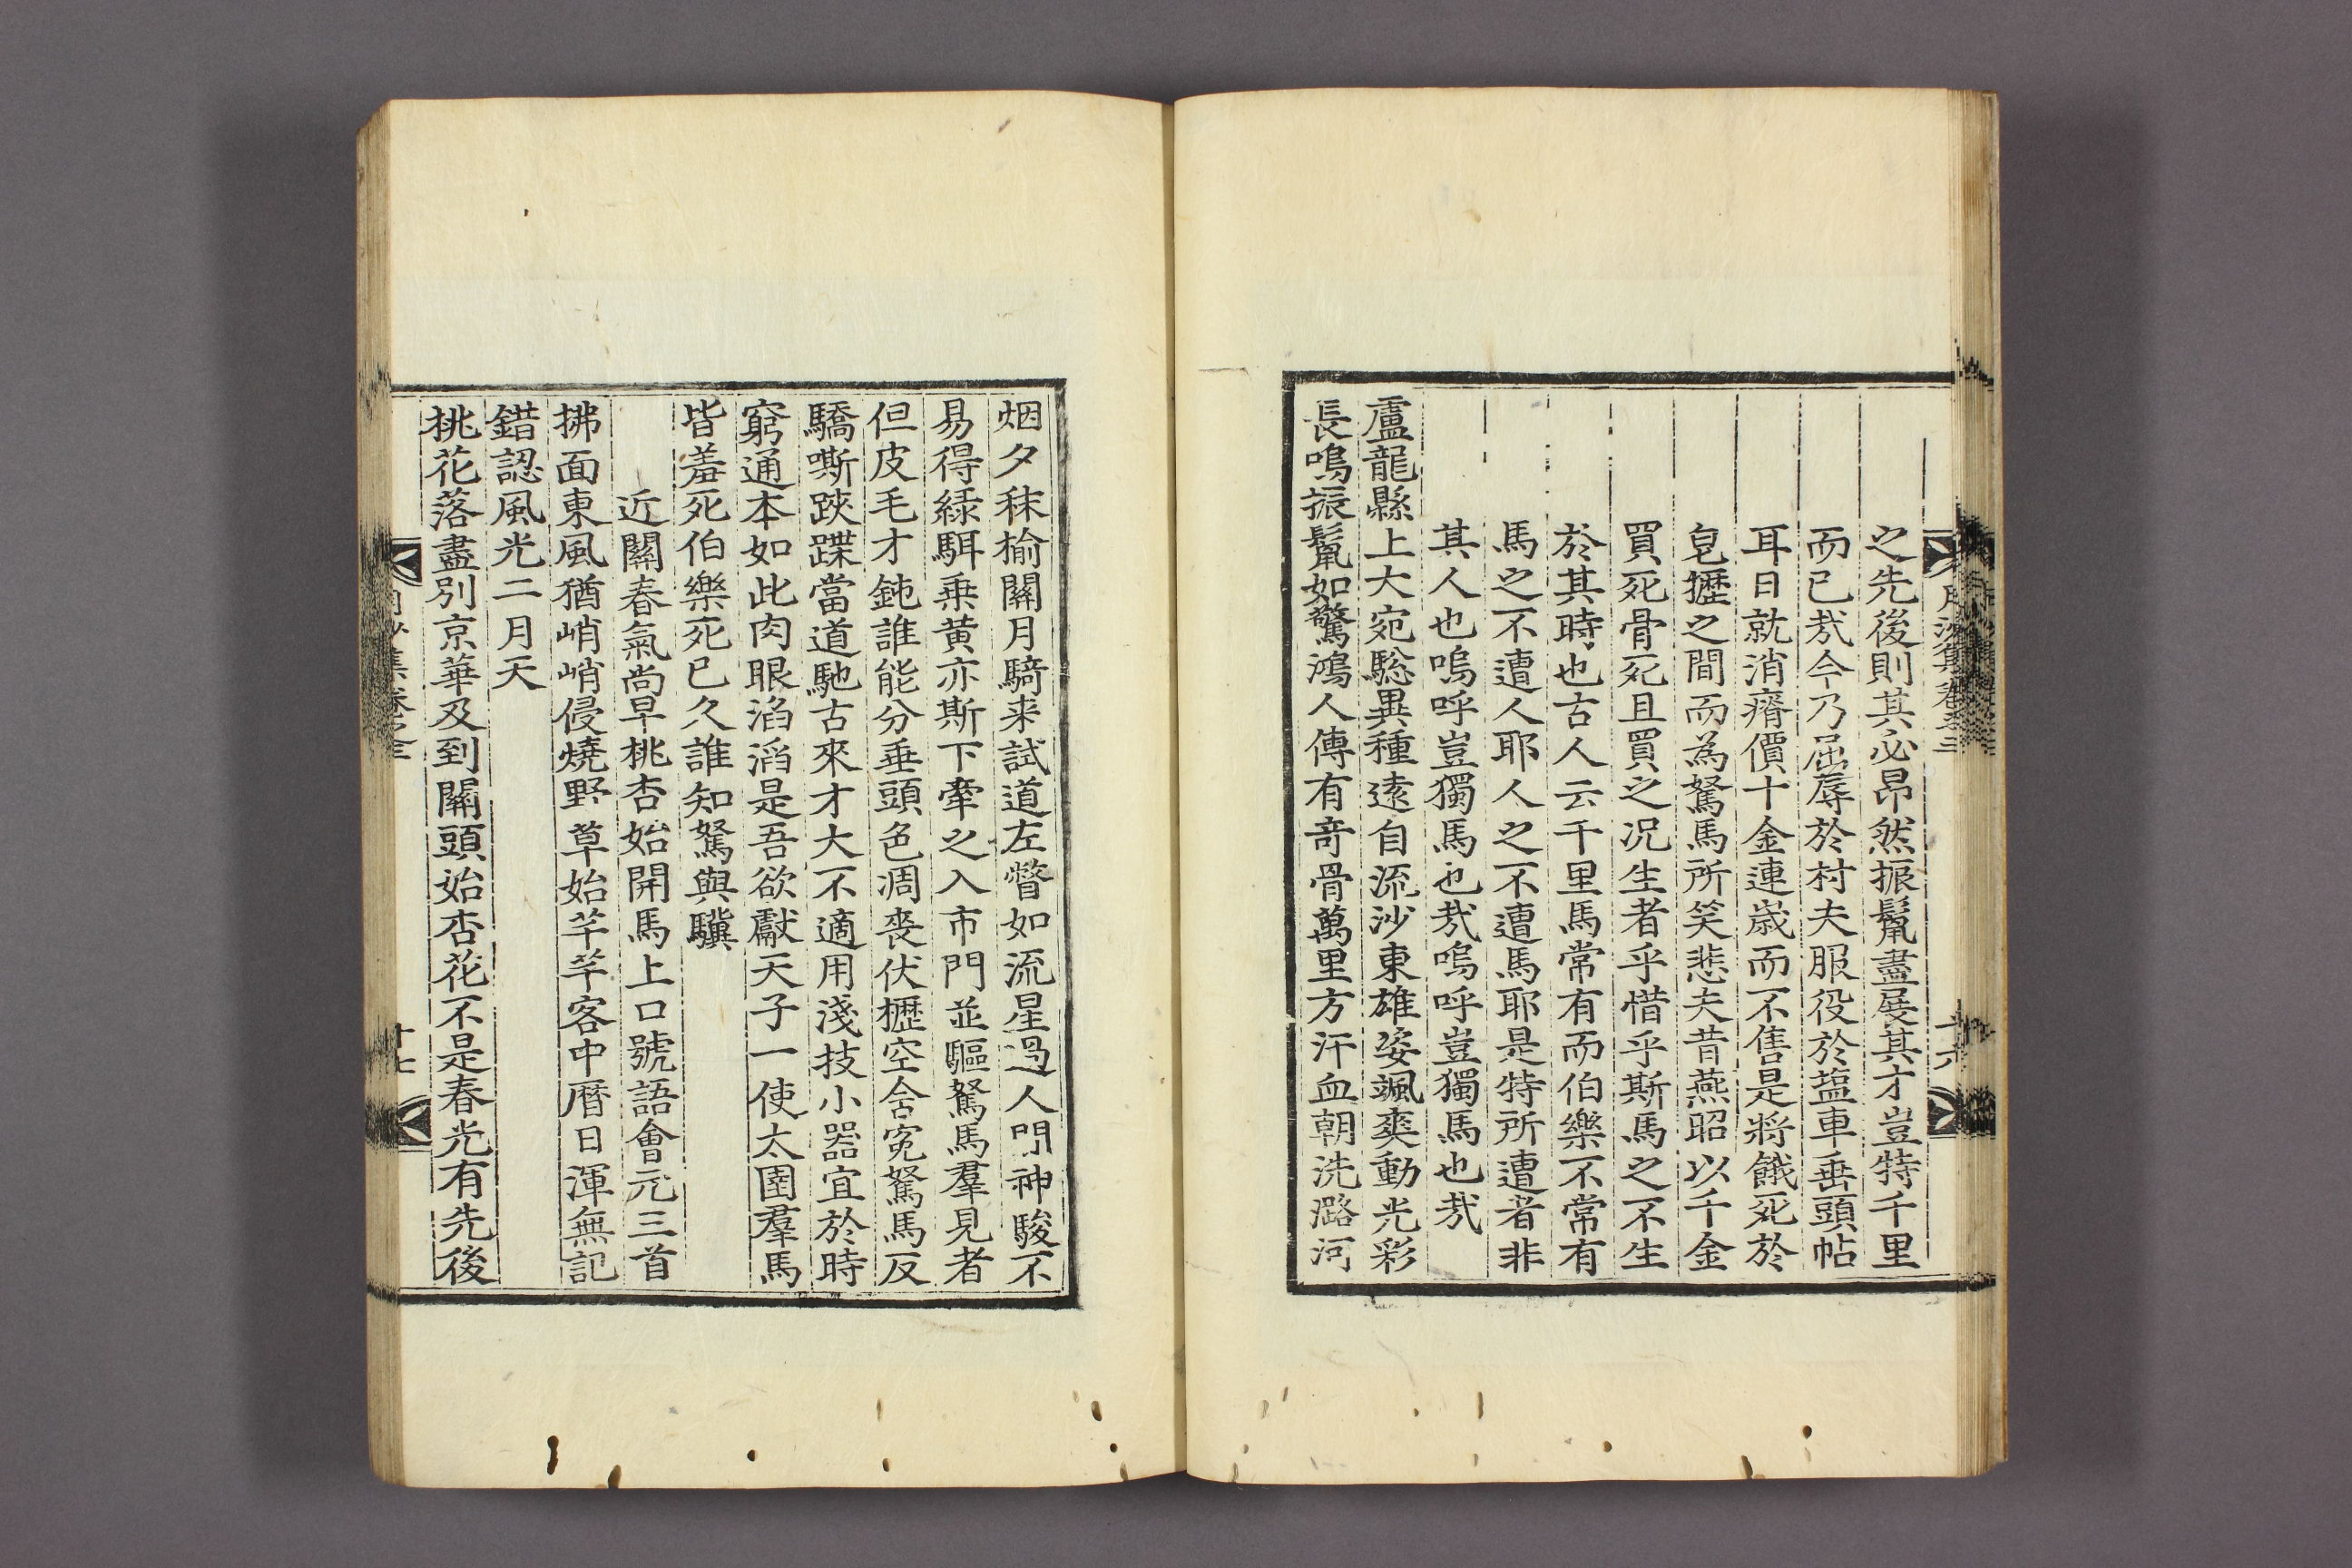 之先後則其必昂然振鬣盡展其才豈特千里
而已㢤今乃屈辱於村夫服役於塩車垂頭帖
耳日就消瘠價十金連歲而不售是將餓死於
皂攊之間而為駑馬所笑悲夫昔燕昭以千金
買死骨死且買之况生者乎惜乎斯馬之不生
於其時也古人云千里馬常有而伯樂不常有
馬之不遭人耶人之不遭馬耶是特所遭者非
其人也嗚呼豈獨馬也㢤嗚呼豈獨馬也㢤
盧龍縣上大宛驄異種遠自流沙東雄姿颯爽動光彩
長鳴振鬣如驚鴻人傳有竒骨萬里方汗血朝洗潞河
烟夕秣榆關月騎来試道左瞥如流星過人門神駿不
易得緑駬乗黃亦斯下牽之入市門並驅駑馬羣見者
但皮毛才鈍誰能分垂頭色凋喪伏櫪空含寃駑馬反
驕嘶踶蹀當道馳古來才大不適用淺技小器宜於時
窮通本如此肉眼滔滔是吾欲獻天子一使太圉羣馬
皆羞死伯樂死已久誰知駑與驥
近關春氣尚早桃杏始開馬上口號語會元三首
拂面東風猶峭峭侵燒野草始芊芊客中曆日渾無記
錯認風光二月天
桃花落盡別京華及到關頭始杏花不是春光有先後